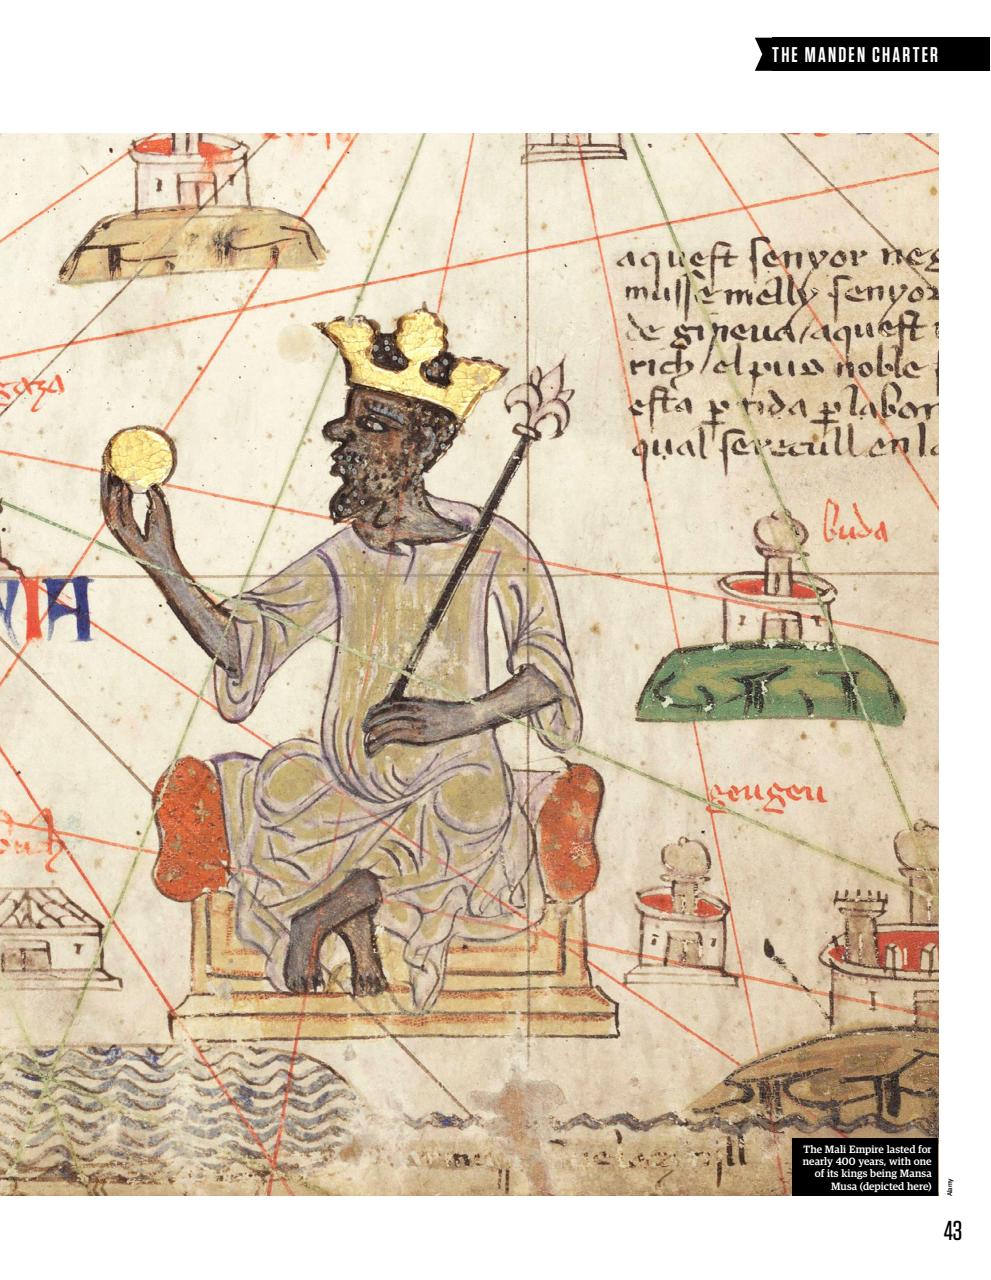 THE MANDEN CHARTER
aquest senyor neg
musse melly senyor
de gineua / aquest
rich / el pus noble
esta p tida p labon
qual se recull en la
buda
geugeu
The Mali Empire lasted for
nearly 400 years, with one
of its kings being Mansa
Musa (depicted here)
Alamy
43